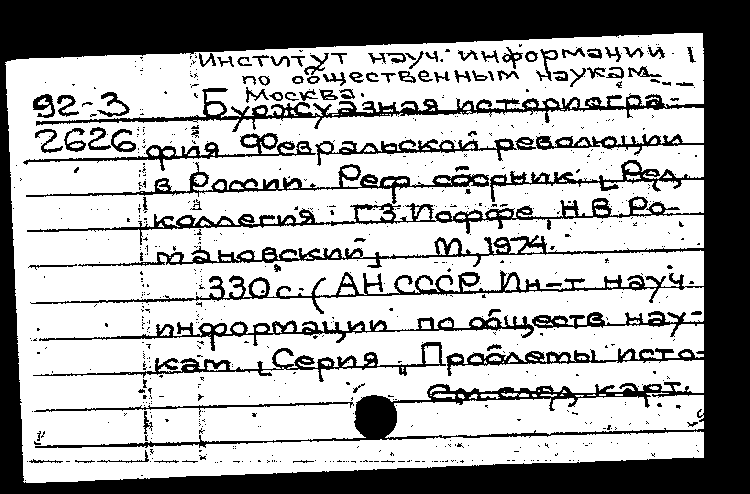 Институт науч. информации
по общественным наукам.
Москва.
92-3 Буржуазная историогра-
2626 фия Февральской революции
в России. Реф. сборник. [Ред.
коллегия: Г.З.Иоффе, Н.В.Ро-
мановский]. М., 1974.
330с. (АН СССР. Ин-т науч.
информации по обществ. нау-
кам. [Серия „Проблемы исто-
См. след. карт.